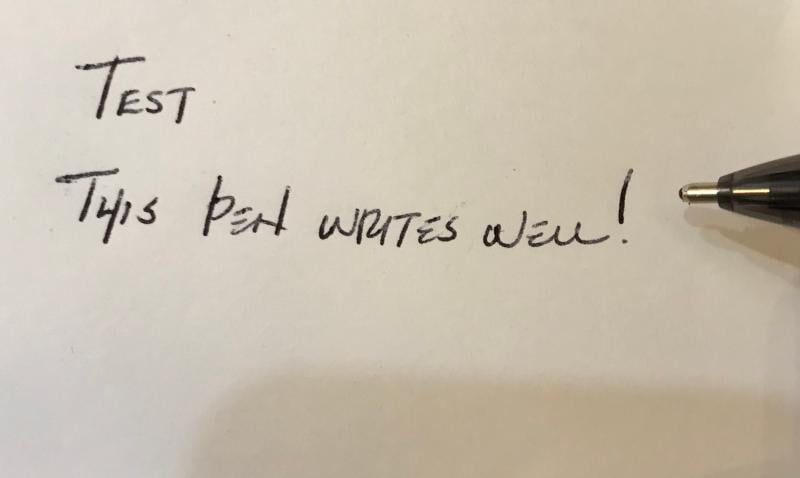 TEST
THIS PEN WRITES WELL!